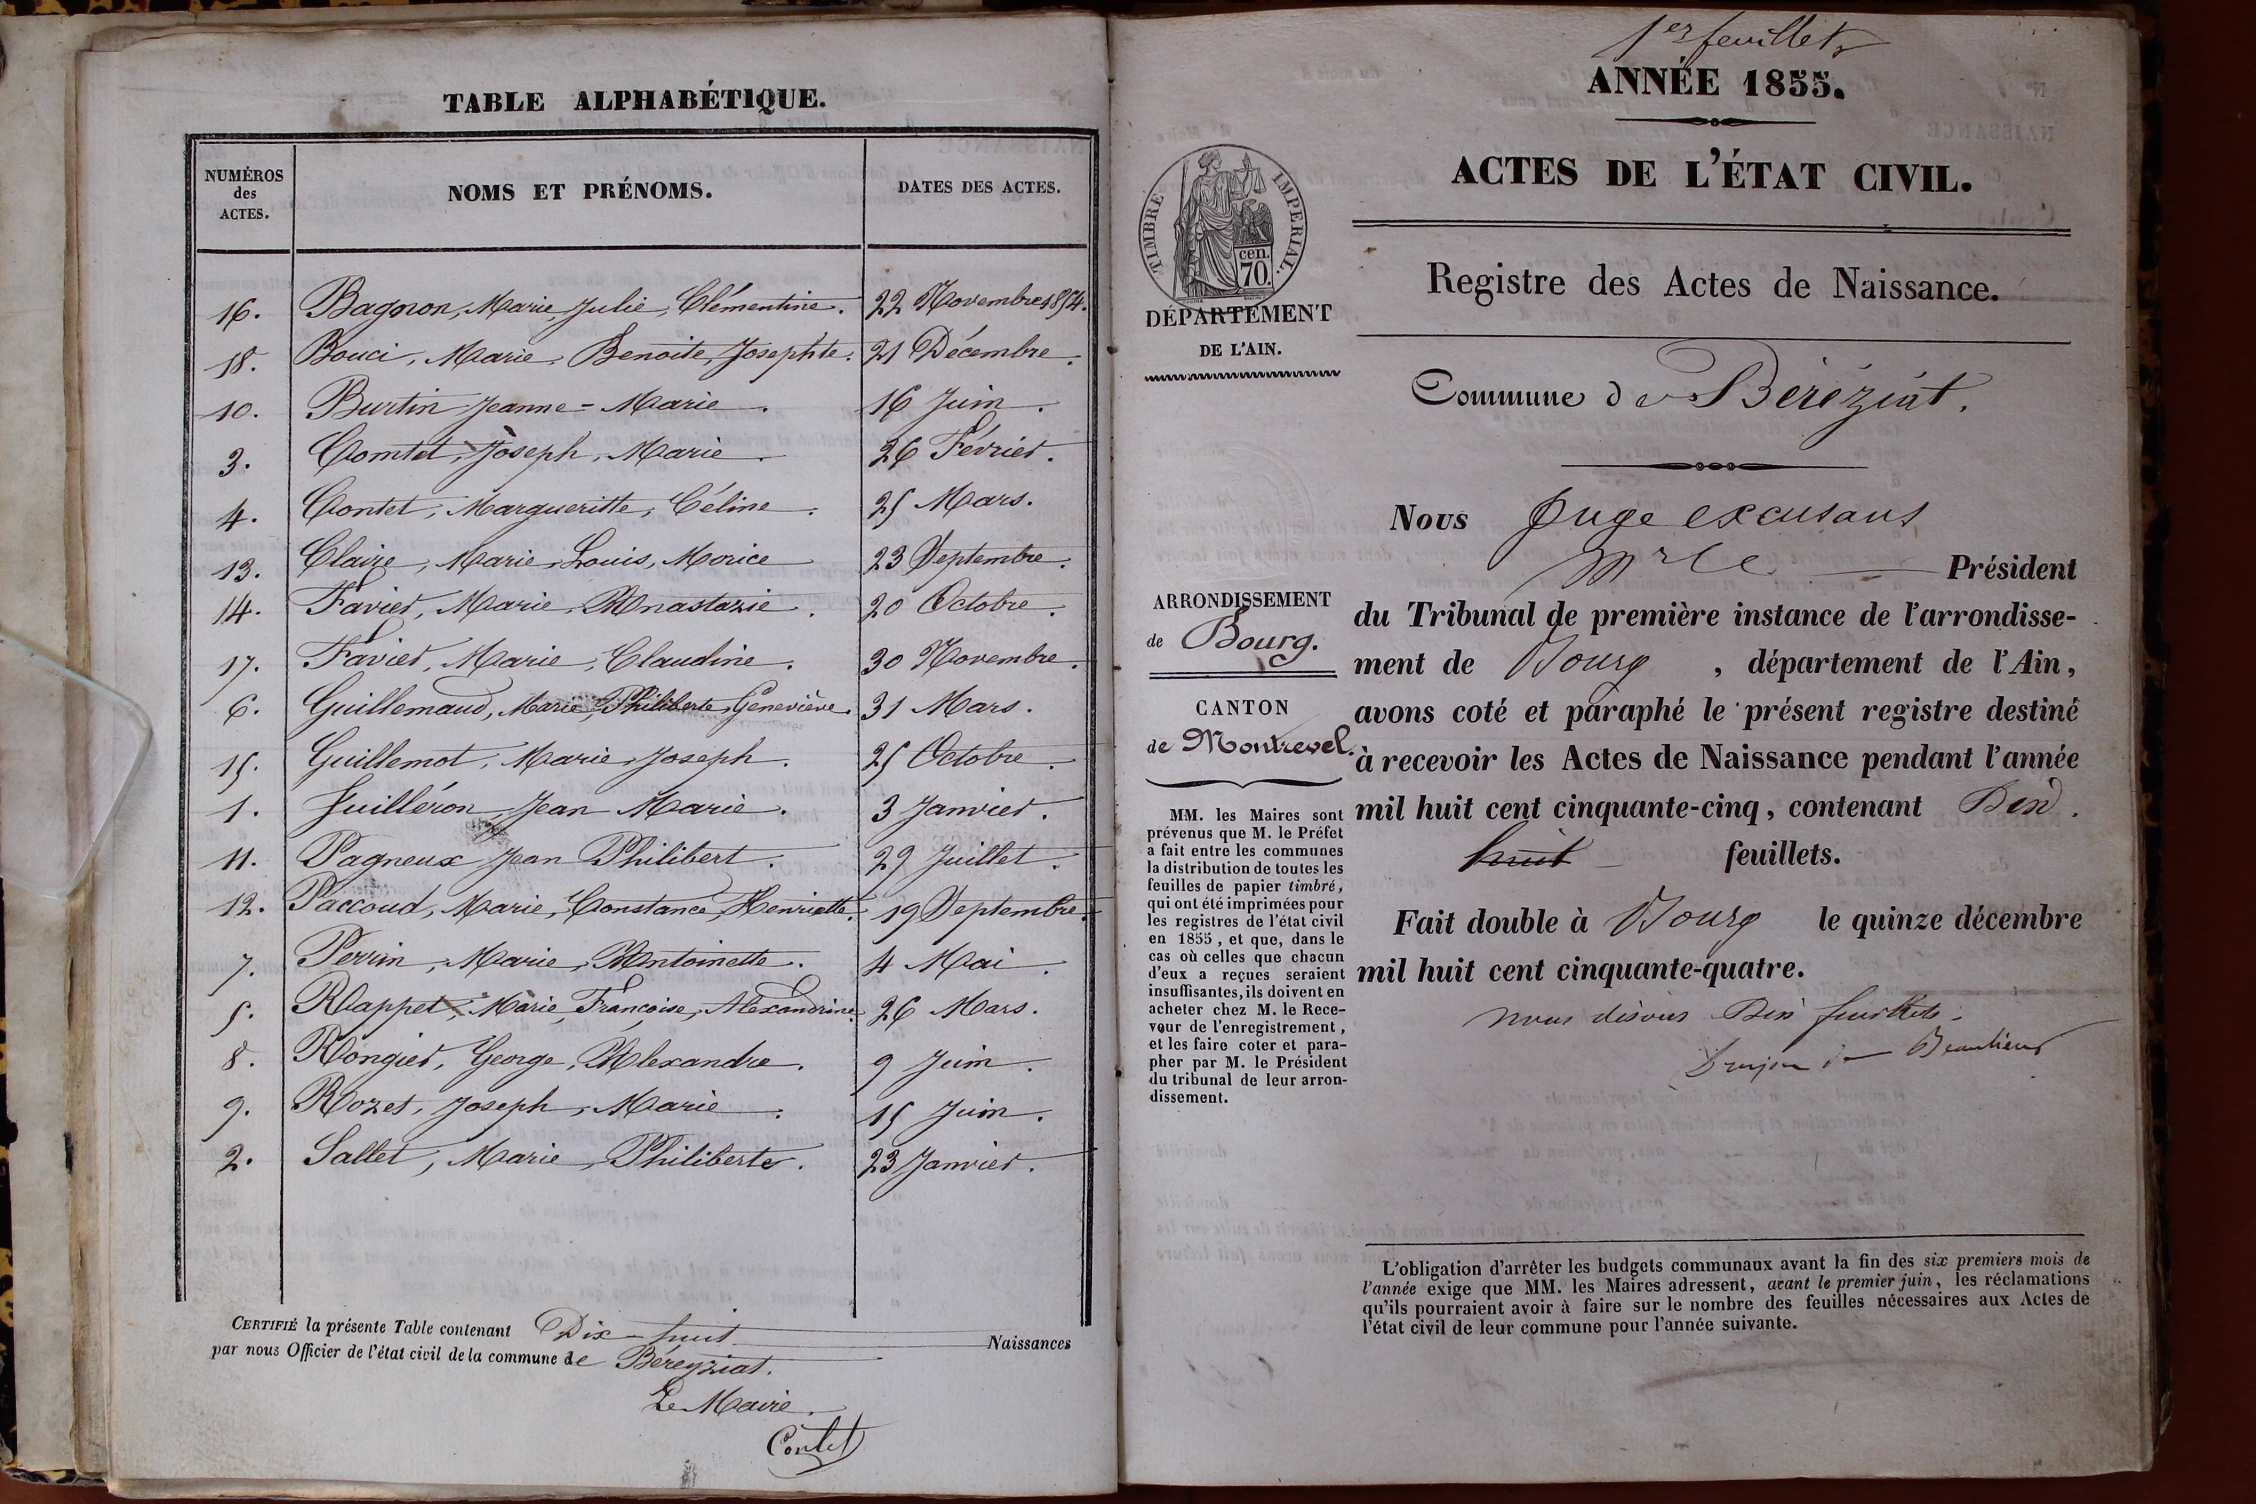 TABLE ALPHABÉTIQUE.
NUMÉROS des ACTES.
NOMS ET PRÉNOMS.
DATES DES ACTES.
16. Bagnon, Marie, Julie, Clémentine. 22 Novembre 1854.
18. Bouci, Marie, Benoite, Josephte. 21 Décembre.
10. Burtin Jeanne=Marie. 16 Juin.
3. Comtet, Joseph, Marie. 26 Février.
4. Contet, Margueritte, Céline. 25 Mars.
13. Claire, Marie, Louis, Morice 23 Septembre.
14. Favier, Marie, Anastazie. 20 Octobre.
17. Favier, Marie, Claudine. 30 Novembre.
6. Guillemaud, Marie, Philiberte, Geneviève. 31 Mars.
15. Guillemot, Marie, Joseph. 25 Octobre.
1. Guilléron, Jean Marie. 3 Janvier.
11. Pagneux Jean Philibert. 29 Juillet.
12. Paccoud, Marie, Constance, Henriette. 19 Septembre.
7. Perrin, Marie, Antoinette. 4 Mai.
5. Rappet, Marie, Françoise, Alexandrine. 26 Mars.
8. Rongier, George, Alexandre. 9 Juin.
9. Rozet, Joseph, Marie. 15 Juin.
2. Sallet, Marie, Philiberte. 23 Janvier.
CERTIFIÉ la présente Table contenant Dix-huit Naissances
par nous Officier de l'état civil de la commune de Béreyziat.
Le Maire.
Contet
1er feuillet
ANNÉE 1855.
ACTES DE L'ÉTAT CIVIL.
TIMBRE IMPÉRIAL.
cen.
70.
DÉPARTEMENT
DE L'AIN.
Registre des Actes de Naissance.
Commune de Béréziat.
ARRONDISSEMENT
de Bourg.
CANTON
de Montrevel.
MM. les Maires sont
prévenus que M. le Préfet
a fait entre les communes
la distribution de toutes les
feuilles de papier timbré,
qui ont été imprimées pour
les registres de l'état civil
en 1855, et que, dans le
cas où celles que chacun
d'eux a reçues seraient
insuffisantes, ils doivent en
acheter chez M. le Rece-
veur de l'enregistrement,
et les faire coter et para-
pher par M. le Président
du tribunal de leur arron-
dissement.
Nous Juge excusant
Mr le Président
du Tribunal de première instance de l'arrondisse-
ment de Bourg, département de l'Ain,
avons coté et paraphé le présent registre destiné
à recevoir les Actes de Naissance pendant l'année
mil huit cent cinquante-cinq, contenant Dix.
huit feuillets.
Fait double à Bourg le quinze décembre
mil huit cent cinquante-quatre.
nous disons Dix feuillets.
Beaulieu
L'obligation d'arrêter les budgets communaux avant la fin des six premiers mois de
l'année exige que MM. les Maires adressent, avant le premier juin, les réclamations
qu'ils pourraient avoir à faire sur le nombre des feuilles nécessaires aux Actes de
l'état civil de leur commune pour l'année suivante.